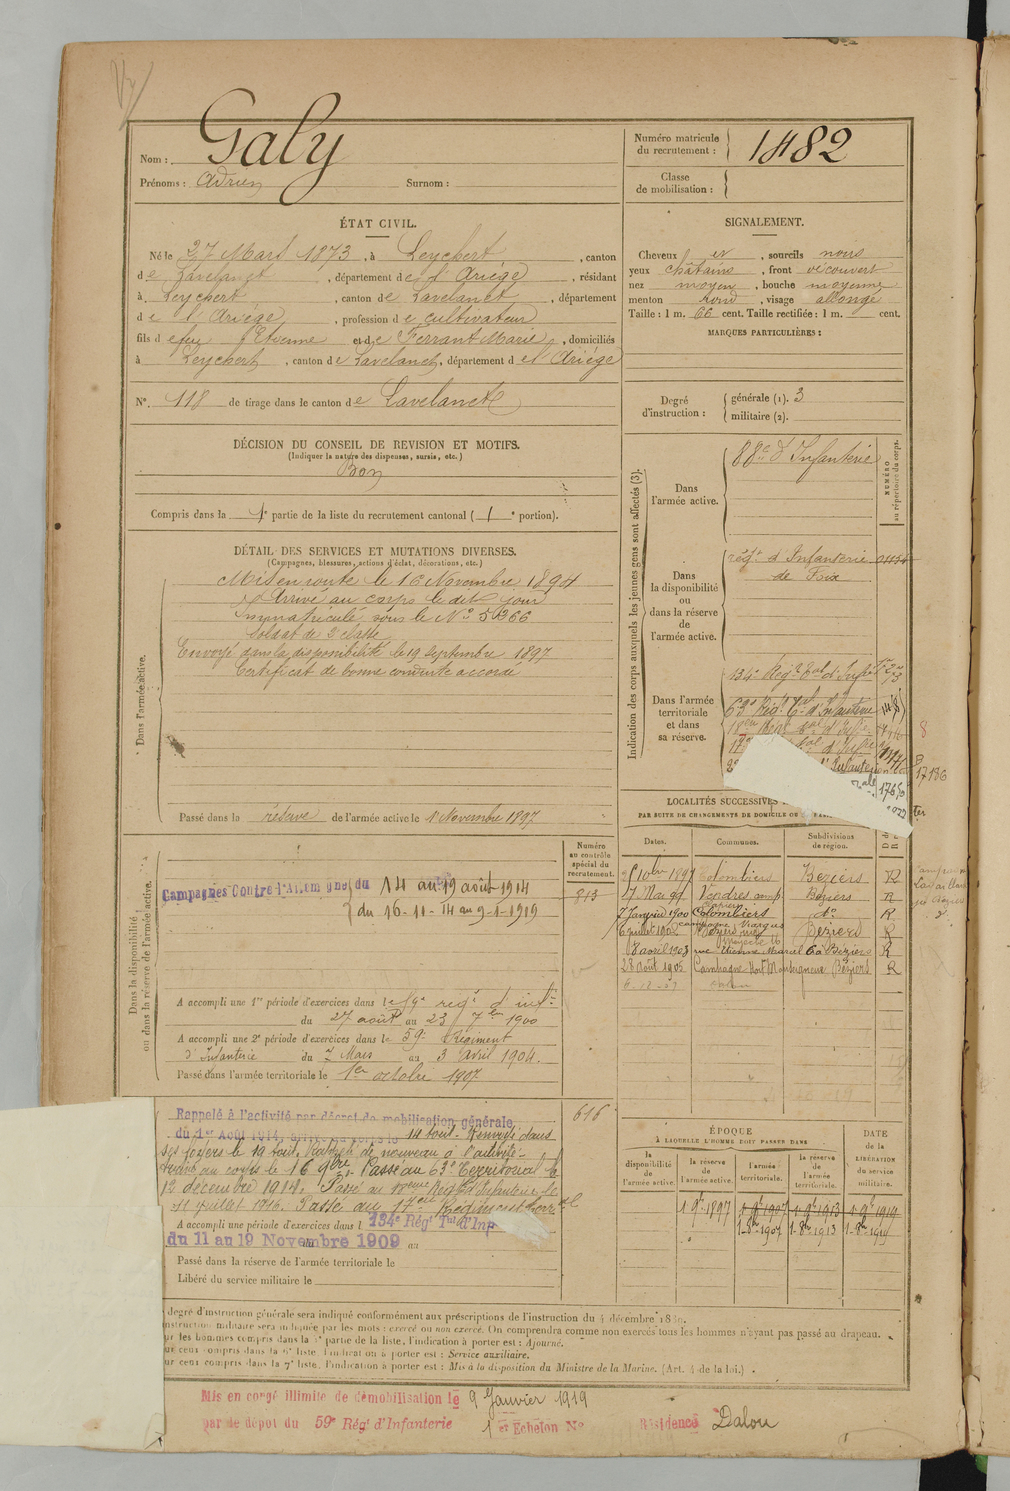 Galy
Nom :
Prénoms : Adrien Surnom :
Numéro matricule du recrutement : 1482
Classe de mobilisation :
ÉTAT CIVIL.
Né le 27 Mars 1873, à Leychert, canton
de Lavelanet, département de l'Ariège, résidant
à Leychert, canton de Lavelanet, département
de l'Ariège, profession de cultivateur
fils de feu Etienne et de Ferrant Marie, domiciliés
à Leychert, canton de Lavelanet, département de l'Ariège
N° 118 de tirage dans le canton de Lavelanet
SIGNALEMENT.
Cheveux et, sourcils noirs
yeux châtains, front découvert
nez moyen, bouche moyenne
menton rond, visage allongé
Taille : 1 m. 66 cent. Taille rectifiée : 1 m. cent.
MARQUES PARTICULIÈRES :
Degré d'instruction : générale (1). 3
militaire (2).
DÉCISION DU CONSEIL DE REVISION ET MOTIFS.
(Indiquer la nature des dispenses, sursis, etc.)
Bon
Compris dans la 1e partie de la liste du recrutement cantonal ( 1e portion).
DÉTAIL DES SERVICES ET MUTATIONS DIVERSES.
(Campagnes, blessures, actions d'éclat, décorations, etc.)
Dans l'armée active.
Mis en route le 16 Novembre 1894
Arrivé au corps le dit jour
immatriculé sous le N° 5366
Soldat de 2e classe
Envoyé dans la disponibilité le 19 Septembre 1897
Certificat de bonne conduite accordé
Passé dans la réserve de l'armée active le 1 Novembre 1897
Indication des corps auxquels les jeunes gens sont affectés (3).
NUMÉRO au répertoire du corps.
Dans l'armée active.
88e d'Infanterie
Dans la disponibilité ou dans la réserve de l'armée active.
régt d'Infanterie
de Foix
Dans l'armée territoriale et dans sa réserve.
134e Régt Tal d'Infie
63e Régt Tal d'Infanterie
d'Infanterie
17186
LOCALITÉS SUCCESSIVES
PAR SUITE DE CHANGEMENTS DE DOMICILE OU
Dates. Communes. Subdivisions de région.
Colombiers Béziers R
17 Mai 99 Vendres Béziers R
7 Janvier 1900 Colombiers do R
6 juillet 1902 Béziers R
18 avril 1903 rue Etienne Marcel 6 à Béziers R
28 août 1905 Campagne Béziers R
Dans la disponibilité ou dans la réserve de l'armée active.
Numéro au contrôle spécial du recrutement.
913
Campagnes Contre l'Allemagne du 14 au 19 août 1914
du 16-11-14 au 9-1-1919
A accompli une 1re période d'exercices dans le 59e régt d'infie
du 27 août au 23 7bre 1900
A accompli une 2e période d'exercices dans le 59e Régiment
d'Infanterie du 7 Mars au 3 Avril 1904.
Passé dans l'armée territoriale le 1er octobre 1907
616
Rappelé à l'activité par décret de mobilisation générale
du 1er Août 1914. 14 aout. Renvoyé dans
ses foyers le 19 aout. Rappelé de nouveau à l'activité
arrivé au corps le 16 9bre. Passé au 63e Territorial le
12 décembre 1914. Passé au 18eme Régt d'Infanterie le
11 juillet 1916. Passé au 17eme Régiment terral
A accompli une période d'exercices dans l 134e Régt Tal d'Inf
du 11 au 19 Novembre 1909 au
Passé dans la réserve de l'armée territoriale le
Libéré du service militaire le
ÉPOQUE
À LAQUELLE L'HOMME DOIT PASSER DANS
DATE de la LIBÉRATION du service militaire.
la disponibilité de l'armée active. la réserve de l'armée active. l'armée territoriale. la réserve de l'armée territoriale.
1 9bre 1897 1 9bre 1907 1 9bre 1913 1 9bre 1919
1-8bre-1907 1-8bre-1913 1-8bre-1919
degré d'instruction générale sera indiqué conformément aux prescriptions de l'instruction du 4 décembre 1889.
instruction militaire sera indiquée par les mots : exercé ou non exercé. On comprendra comme non exercés tous les hommes n'ayant pas passé au drapeau.
ur les hommes compris dans la partie de la liste, l'indication à porter est : Ajourné.
ur ceux compris dans la liste, l'indication à porter est : Service auxiliaire.
ur ceux compris dans la 7e liste, l'indication à porter est : Mis à la disposition du Ministre de la Marine. (Art. 4 de la loi.)
Mis en congé illimité de démobilisation le 9 Janvier 1919
par le dépôt du 59e Régt d'Infanterie 1er Echelon N° Résidence Dalou